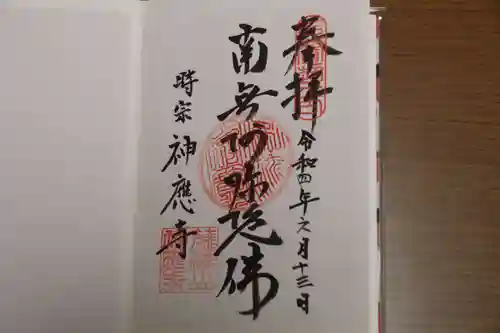 奉拝
令和四年六月十三日
南無阿弥陀佛
時宗 神應寺